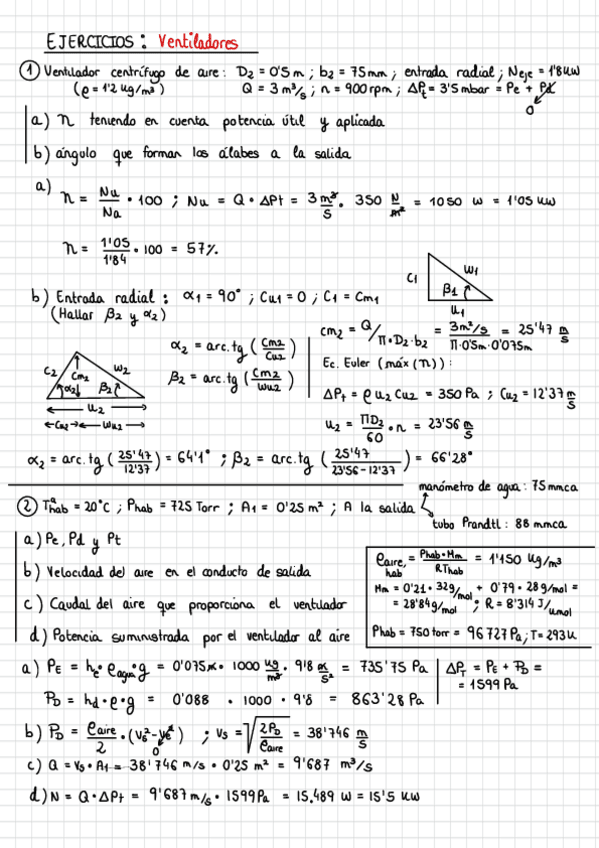 EJERCICIOS: Ventiladores
① Ventilador centrífugo de aire: D2 = 0'5 m ; b2 = 75 mm ; entrada radial ; Neje = 1'8 kW
(ρ = 1'2 kg/m³) Q = 3 m³/s ; n = 900 rpm ; ΔPt = 3'5 mbar = Pe + Pd
0
a) η teniendo en cuenta potencia útil y aplicada
b) ángulo que forman los álabes a la salida
a) η = Nu/Na · 100 ; Nu = Q · ΔPt = 3 m³/s · 350 N/m² = 1050 W = 1'05 kW
η = 1'05/1'84 · 100 = 57%
b) Entrada radial : α1 = 90° ; Cu1 = 0 ; C1 = Cm1
(Hallar β2 y α2)
C1 W1 β1 u1
C2 Cm2 W2 α2 β2
u2
Cu2 Wu2
α2 = arc.tg (Cm2/Cu2)
β2 = arc.tg (Cm2/Wu2)
cm2 = Q/π·D2·b2 = 3m³/s/π·0'5m·0'075m = 25'47 m/s
Ec. Euler (máx (η)) :
ΔPt = ρ u2 Cu2 = 350 Pa ; Cu2 = 12'37 m/s
u2 = πD2/60 · n = 23'56 m/s
α2 = arc.tg (25'47/12'37) = 64'1° ; β2 = arc.tg (25'47/23'56-12'37) = 66'28°
manómetro de agua : 75 mmca
② Thab = 20°C ; Phab = 725 Torr ; A1 = 0'25 m² ; A la salida
tubo Prandtl : 88 mmca
a) Pe, Pd y Pt
b) Velocidad del aire en el conducto de salida
c) Caudal del aire que proporciona el ventilador
d) Potencia suministrada por el ventilador al aire
ρaire,hab = Phab·Mm/R Thab = 1'150 kg/m³
Mm = 0'21 · 32 g/mol + 0'79 · 28 g/mol =
= 28'84 g/mol ; R = 8'314 J/k.mol
Phab = 750 torr = 96727 Pa ; T = 293 K
a) PE = he · ρagua · g = 0'075 m · 1000 kg/m³ · 9'8 m/s² = 735'75 Pa
PD = hd · ρ · g = 0'088 · 1000 · 9'8 = 863'28 Pa
ΔPT = PE + PD =
= 1599 Pa
b) PD = ρaire/2 · (Vs² - Ve²) ; Vs = √2PD/ρaire = 38'746 m/s
0
c) Q = Vs · A1 = 38'746 m/s · 0'25 m² = 9'687 m³/s
d) N = Q · ΔPt = 9'687 m/s · 1599 Pa = 15.489 W = 15'5 kW